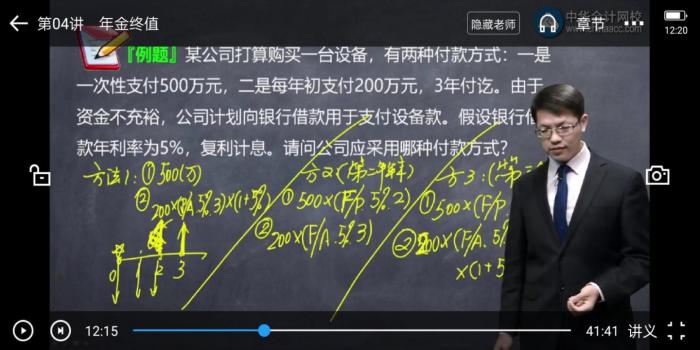 第04讲 年金终值
隐藏老师
章节
12:20
中华会计网校
『例题』某公司打算购买一台设备，有两种付款方式：一是
一次性支付500万元，二是每年初支付200万元，3年付讫。由于
资金不充裕，公司计划向银行借款用于支付设备款。假设银行借
款年利率为5%，复利计息。请问公司应采用哪种付款方式？
方法1：①500(万)
②200×(P/A.5%.3)×(1+5%)
0 1 2 3
方2（第二年年末
①500×(F/P.5%.2)
②200×(F/A.5%.3)
方3：
①500×(F/P.
②200×(F/A.5%
×(1+5
12:15
41:41
讲义